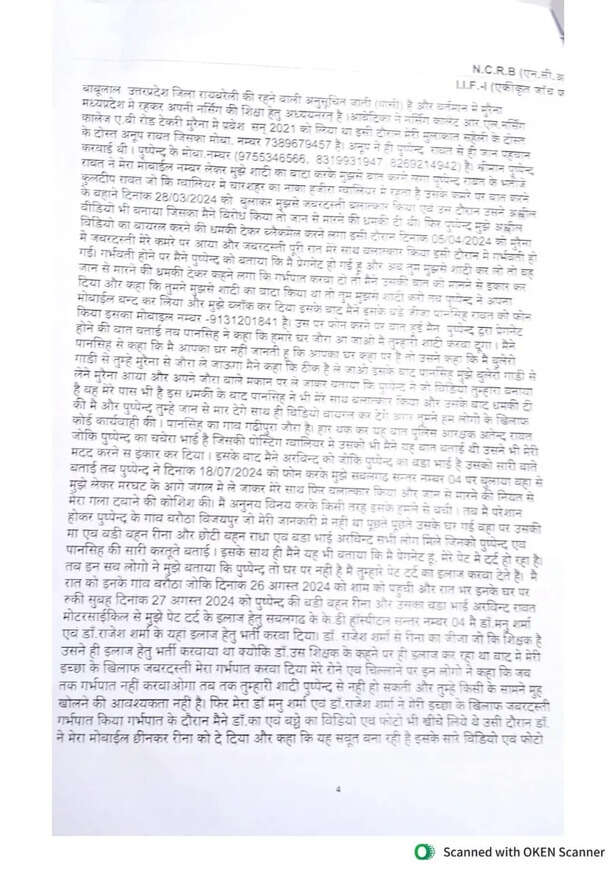 N.C.R.B (एन.सी.आ
I.I.F.-I (एकीकृत जाँच फ
बाबूलाल उत्तरप्रदेश जिला रायबरेली की रहने वाली अनुसूचित जाती (पासी) है और वर्तमान में मुरैना
मध्यप्रदेश में रहकर अपनी नर्सिंग की शिक्षा हेतु अध्ययनरत है।आवेदिका ने नर्सिंग कालेज आर एल नर्सिंग
कालेज ए.बी रोड टेकरी मुरैना में प्रवेश सन् 2021 को लिया था इसी दौरान मेरी मुलाकात सहेली के दोस्त
के दोस्त अनूप रावत जिसका मोबा. नम्बर 7389679457 है। अनूप ने ही पुष्पेन्द्र रावत से ही जान पहचान
करवाई थी । पुष्पेन्द्र के मोबा.नम्बर (9755346566, 8319931947 8269214942) है। श्रीमान पुष्पेन्द्र
रावत ने मेरा मोबाईल नम्बर लेकर मुझे शादी का वादा करके मुझसे बात करने लगा पुष्पेन्द्र रावत के भतीजे
कुलदीप रावत जो कि ग्वालियर में चारशहर का नाका हजीरा ग्वालियर में रहता है उसके कमरे पर बात करने
के बहाने दिनांक 28/03/2024 को बुलाकर मुझसे जबरदस्ती बलात्कार किया एवं उस दौरान उसने अश्लील
वीडियो भी बनाया जिसका मैने विरोध किया तो जान से मारने की धमकी दी थी। फिर पुष्पेन्द्र मुझे अश्लील
विडियो का वायरल करने की धमकी देकर ब्लैकमेल करने लगा इसी दौरान दिनांक 05/04/2024 को मुरैना
में जबरदस्ती मेरे कमरे पर आया और जबरदस्ती पूरी रात मेरे साथ बलात्कार किया इसी दौरान में गर्भवती हो
गई। गर्भवती होने पर मैने पुष्पेन्द्र को बताया कि मै प्रेगनेट हो गई हू और अब तुम मुझसे शादी कर लो तो वह
जान से मारने की धमकी देकर कहने लगा कि गर्भपात करवा दो तो मैने उसकी बात को मानने से इंकार कर
दिया और कहा कि तुमने मुझसे शादी का वादा किया था तो तुम मुझसे शादी करो तब पुष्पेन्द्र ने अपना
मोबाईल बन्द कर लिया और मुझे ब्लॉक कर दिया इसके बाद मैने इसके बडे जीजा पानसिंह रावत को फोन
किया इसका मोबाइल नम्बर -9131201841 है। उस पर फोन करने पर बात हुई मैने पुष्पेन्द्र द्वरा प्रेगनेट
होने की बात बताई तब पानसिंह ने कहा कि हमारे घर जौरा आ जाओ मै तुम्हारी शादी करवा दूगा । मैने
पानसिंह से कहा कि मै आपका घर नही जानती हू कि आपका घर कहा पर है तो उसने कहा कि मै बुलेरो
गाडी से तुम्हे मुरैना से जौरा ले जाऊगा मैने कहा कि ठीक है ले जाओ इसके बाद पानसिंह मुझे बुलेरो गाडी से
लेने मुरैना आया और अपने जौरा वाले मकान पर ले जाकर बताया कि पुष्पेन्द्र ने जो विडियो तुम्हारा बनाया
है वह मेरे पास भी है इस धमकी के बाद पानसिंह ने भी मेरे साथ बलात्कार किया और उसके बाद धमकी दी
की मै और पुष्पेन्द्र तुम्हे जान से मार देगे साथ ही विडियो वायरल कर देगे अगर तुमने हम लोगो के खिलाफ
कोई कार्यवाही की । पानसिंह का गाव गढीपुरा जौरा है। हार थक कर यह बात पुलिस आरक्षक अतेन्द्र रावत
जोकि पुष्पेन्द्र का चचेरा भाई है जिसकी पोस्टिंग ग्वालियर मे उसको भी मैने यह बात बताई थी उसने भी मेरी
मदद करने से इंकार कर दिया । इसके बाद मैने अरविन्द्र को जोकि पुष्पेन्द्र का बडा भाई है उसको सारी बाते
बताई तब पुष्पेन्द्र ने दिनाक 18/07/2024 को फोन करके मुझे सबलगढ सन्तर नम्बर 04 पर बुलाया वहा से
मुझे लेकर मरघट के आगे जगल मे ले जाकर मेरे साथ फिर बलात्कार किया और जान से मारने की नियत से
मेरा गला दबाने की कोशिश की। मै अनुनय विनय करके किसी तरह इसके हमले से बची । तब मै परेशान
होकर पुष्पेन्द्र के गाव बरौठा विजयपुर जो मेरी जानकारी मे नही था पूछते पूछते उसके घर गई वहा पर उसकी
मा एव बडी बहन रीना और छोटी बहन राधा एव बडा भाई अरविन्द्र सभी लोग मिले जिनको पुष्पेन्द्र एव
पानसिंह की सारी करतूते बताई । इसके साथ ही मैने यह भी बताया कि मै प्रेगनेट हू, मेरे पेट मे दर्द हो रहा है।
तब इन सब लोगो ने मुझे बताया कि पुष्पेन्द्र तो घर पर नही है मै तुम्हारे पेट दर्द का इलाज करवा देते है। मै
रात को इनके गाव बरौठा जोकि दिनाक 26 अगस्त 2024 को शाम को पहुची और रात भर इनके घर पर
रूकी सुबह दिनाक 27 अगस्त 2024 को पुष्पेन्द्र की बडी बहन रीना और उसका बडा भाई अरविन्द्र रावत
मोटरसाईकिल से मुझे पेट दर्द के इलाज हेतु सबलगढ के के.डी हॉस्पीटल सन्तर नम्बर 04 मै डॉ.मनु शर्मा
एव डॉ.राजेश शर्मा के यहा इलाज हेतु भर्ती करवा दिया। डॉ. राजेश शर्मा से रीना का जीजा जो कि शिक्षक है
उसने ही इलाज हेतु भर्ती करवाया था क्योकि डॉ.उस शिक्षक के कहने पर ही इलाज कर रहा था बाद मे मेरी
इच्छा के खिलाफ जबरदस्ती मेरा गर्भपात करवा दिया मेरे रोने एव चिल्लाने पर इन लोगो ने कहा कि जब
तक गर्भपात नही करवाओगा तब तक तुम्हारी शादी पुष्पेन्द्र से नही हो सकती और तुम्हे किसी के सामने मुह
खोलने की आवश्यकता नही है। फिर मेरा डॉ मनु शर्मा एव डॉ.राजेश शर्मा ने मेरी इच्छा के खिलाफ जबरदस्ती
गर्भपात किया गर्भपात के दौरान मैने डॉ.का एव बच्चे का विडियो एव फोटो भी खीचे लिये थे उसी दौरान डॉ.
ने मेरा मोबाईल छीनकर रीना को दे दिया और कहा कि यह सबूत बना रही है इसके सारे विडियो एव फोटो
4
Scanned with OKEN Scanner